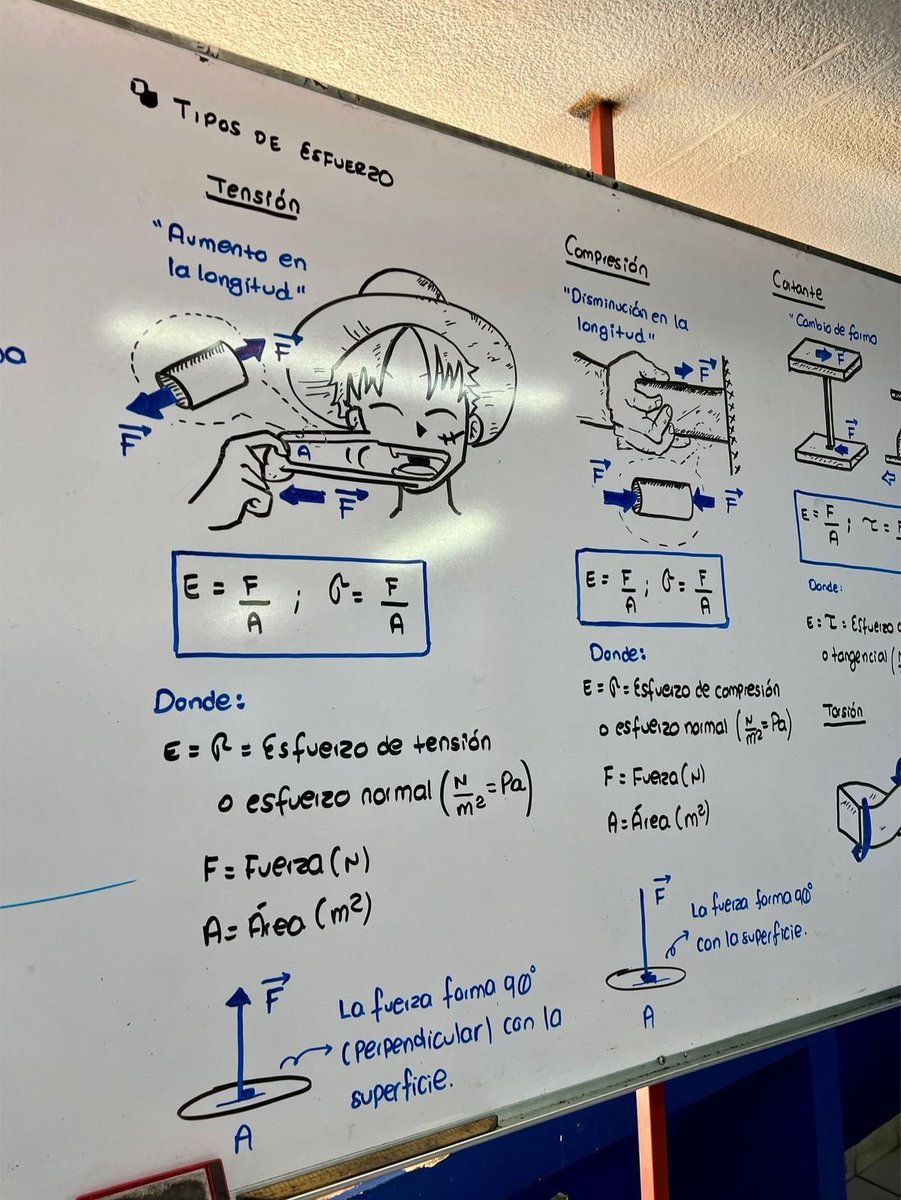 TIPOS DE ESFUERZO
Tensión
"Aumento en
la longitud"
F
F
A
F
E = F/A ; σ = F/A
Donde:
E = σ = Esfuerzo de tensión
o esfuerzo normal (N/m² = Pa)
F = Fuerza (N)
A = Área (m²)
F
A
La fuerza forma 90°
(perpendicular) con la
superficie.
Compresión
"Disminución en la
longitud"
F
F
F
E = F/A ; σ = F/A
Donde:
E = σ = Esfuerzo de compresión
o esfuerzo normal (N/m² = Pa)
F = Fuerza (N)
A = Área (m²)
F
A
La fuerza forma 90°
con la superficie.
Cortante
"Cambio de forma
F
F
E = F/A ; τ =
Donde:
E = τ = Esfuerzo
o tangencial
Torsión